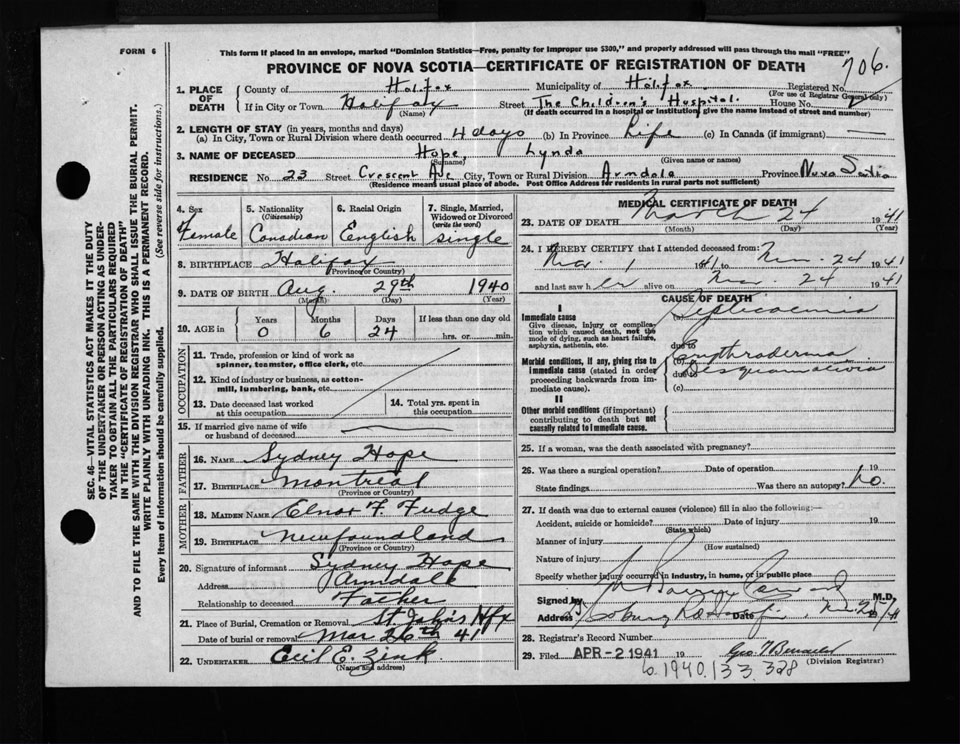 FORM 6
This form if placed in an envelope, marked "Dominion Statistics—Free, penalty for improper use $300," and properly addressed will pass through the mail "FREE"
PROVINCE OF NOVA SCOTIA—CERTIFICATE OF REGISTRATION OF DEATH
706.
1. PLACE OF DEATH
County of Halifax Municipality of Halifax Registered No.
(For use of Registrar General only)
If in City or Town Halifax Street The Children's Hospital. House No.
(Name) (If death occurred in a hospital or institution, give the name instead of street and number)
2. LENGTH OF STAY (in years, months and days)
(a) In City, Town or Rural Division where death occurred 4 days (b) In Province Life (c) In Canada (if immigrant) —
3. NAME OF DECEASED Hope, Lynda
(Surname) (Given name or names)
RESIDENCE No. 23 Street Crescent Ave City, Town or Rural Division Armdale Province Nova Scotia
(Residence means usual place of abode. Post Office Address for residents in rural parts not sufficient)
4. Sex Female
5. Nationality (Citizenship) Canadian
6. Racial Origin English
7. Single, Married, Widowed or Divorced (write the word) single
8. BIRTHPLACE Halifax
(Province or Country)
9. DATE OF BIRTH Aug. 29th 1940
(Month) (Day) (Year)
10. AGE in Years Months Days If less than one day
0 6 24 hrs. or min.
OCCUPATION
11. Trade, profession or kind of work as spinner, teamster, office clerk, etc.
12. Kind of industry or business, as cotton-mill, lumbering, bank, etc.
13. Date deceased last worked at this occupation
14. Total yrs. spent in this occupation
15. If married give name of wife or husband of deceased
FATHER
16. NAME Sydney Hope
17. BIRTHPLACE Montreal
(Province or Country)
MOTHER
18. MAIDEN NAME Elnor F. Fudge
19. BIRTHPLACE Newfoundland
(Province or Country)
20. Signature of informant Sydney Hope
Address Armdale
Relationship to deceased Father
21. Place of Burial, Cremation or Removal St. John's Hfx
Date of burial or removal Mar 26th 41
22. UNDERTAKER Cecil E. Zink.
(Name and address)
MEDICAL CERTIFICATE OF DEATH
23. DATE OF DEATH March 24 1941
(Month) (Day) (Year)
24. I HEREBY CERTIFY that I attended deceased from:
Mar. 1 1941 to Mar. 24 1941
and last saw her alive on Mar. 24 1941
CAUSE OF DEATH
I
Immediate cause
Give disease, injury or complication which caused death, not the mode of dying, such as heart failure, asphyxia, asthenia, etc.
(a) Septicaemia
due to
Morbid conditions, if any, giving rise to immediate cause (stated in order proceeding backwards from immediate cause).
(b) Erythroderma
due to Desquamativa
(c)
II
Other morbid conditions (if important) contributing to death but not causally related to immediate cause.
25. If a woman, was the death associated with pregnancy?
26. Was there a surgical operation? Date of operation 19
State findings Was there an autopsy? No.
27. If death was due to external causes (violence) fill in also the following:—
Accident, suicide or homicide? Date of injury 19
(State which)
Manner of injury
(How sustained)
Nature of injury
Specify whether injury occurred in industry, in home, or in public place
Signed by M.D.
Address Date Mar 25 1941
28. Registrar's Record Number
29. Filed APR - 2 1941 19
(Division Registrar)
6.1940.133.328
SEC. 46—VITAL STATISTICS ACT MAKES IT THE DUTY
OF THE UNDERTAKER OR PERSON ACTING AS UNDER-
TAKER TO OBTAIN ALL THE PARTICULARS REQUIRED
IN THE "CERTIFICATE OF REGISTRATION OF DEATH"
AND TO FILE THE SAME WITH THE DIVISION REGISTRAR WHO SHALL ISSUE THE BURIAL PERMIT.
WRITE PLAINLY WITH UNFADING INK. THIS IS A PERMANENT RECORD.
Every item of information should be carefully supplied. (See reverse side for instructions.)